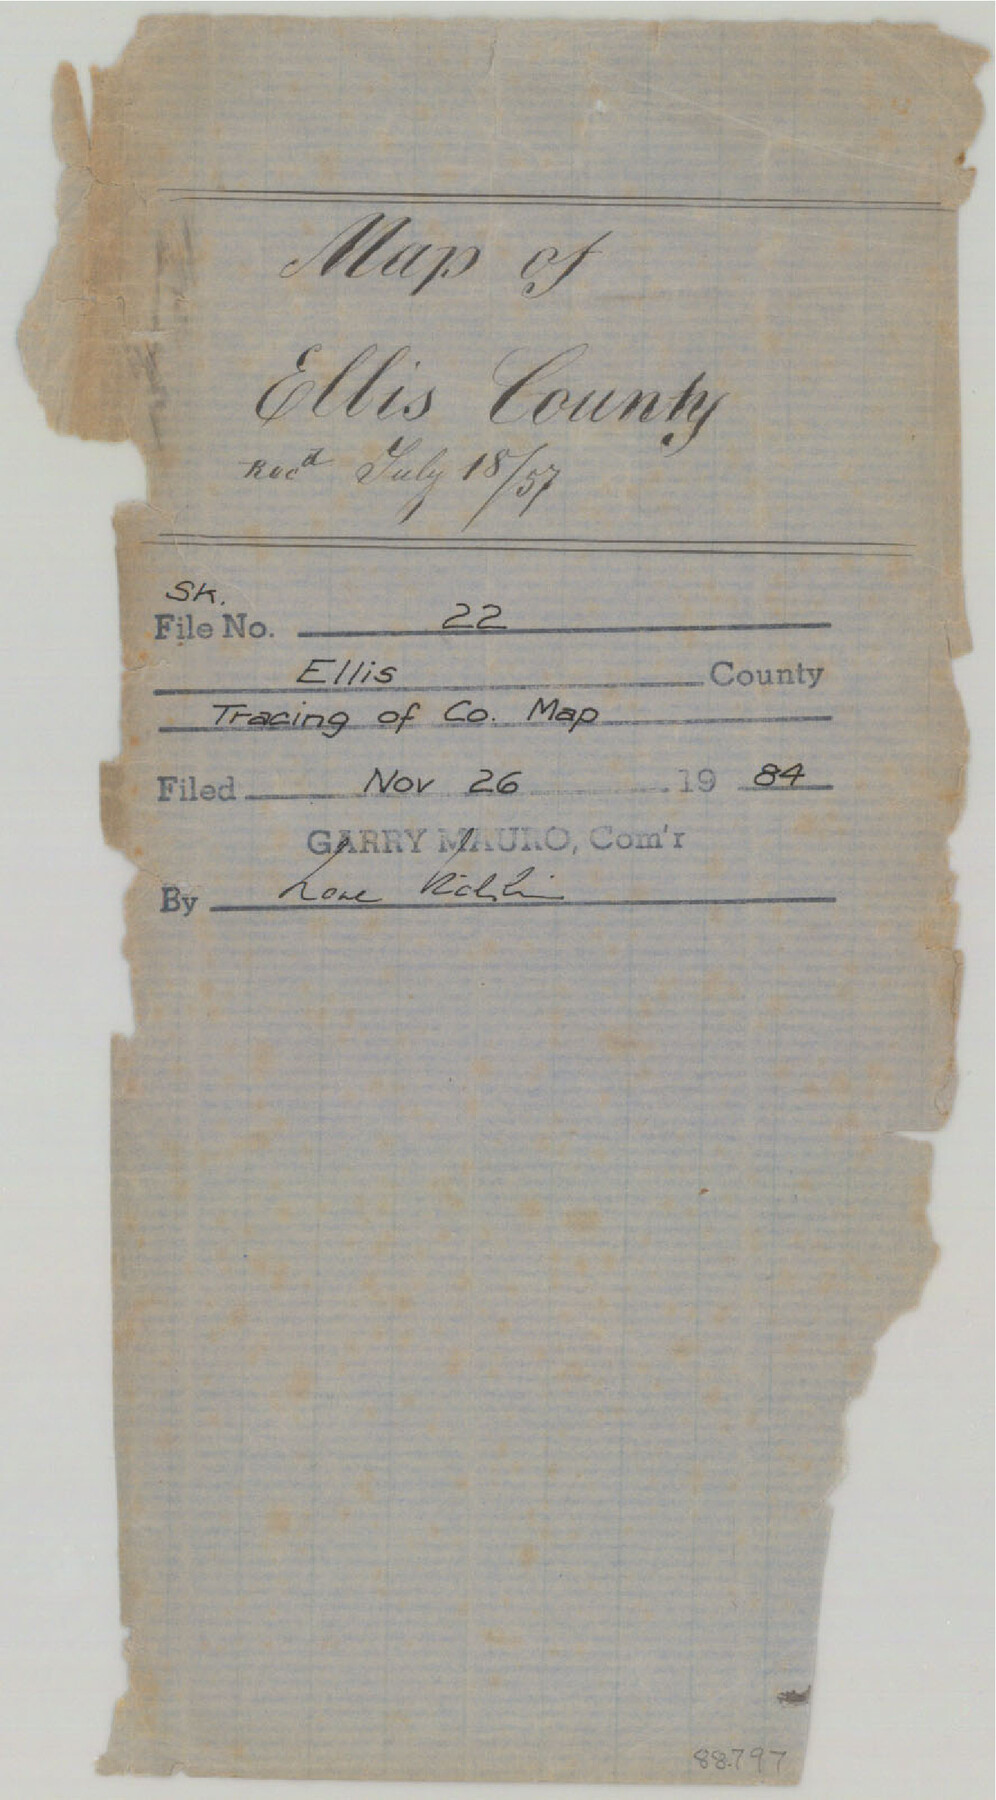 Map of
Ellis County
Recd July 18/57
Sk.
File No. 22
Ellis County
Tracing of Co. Map
Filed Nov 26 19 84
GARRY MAURO, Com'r
By
88797